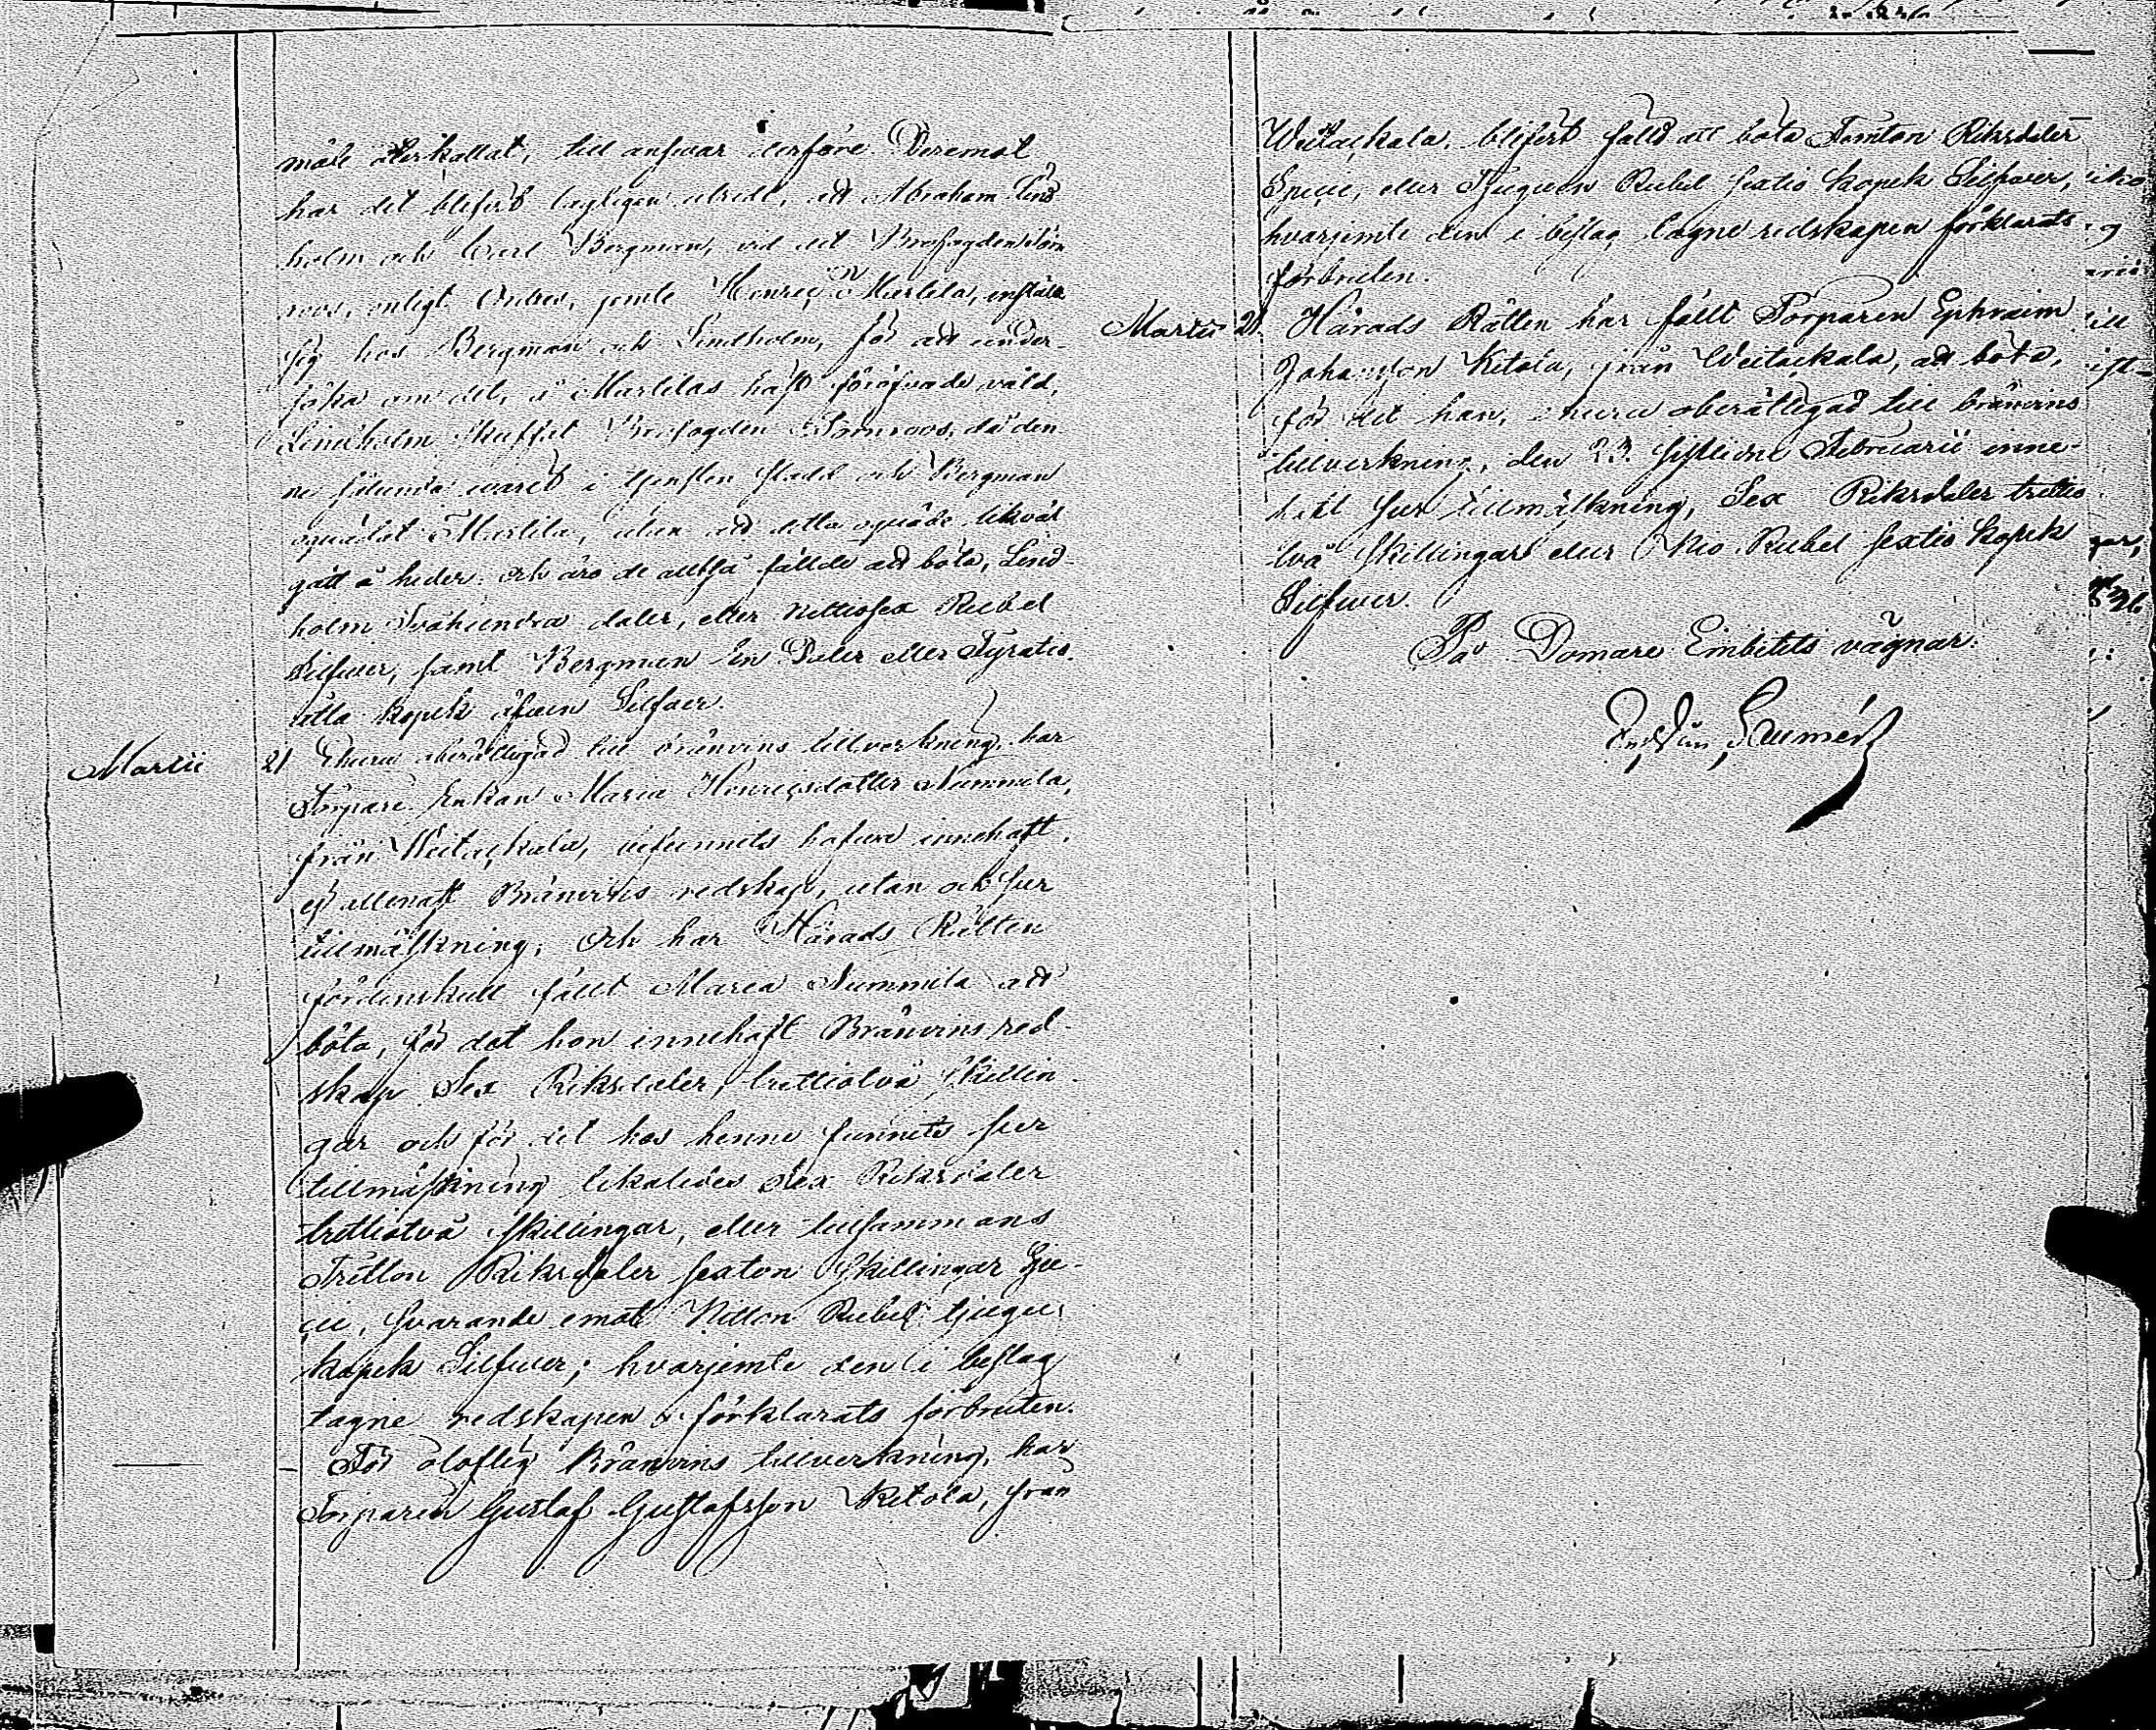 måle återkallat, till answar derföre Deremot
har det blifvit lagligen utredt, att Abraham Lind
holm och Carl Bergman, vid det Brofogden Törn
roos, enligt Ordres, jemte Henric Martila, instält
sig hos Bergman och Lindholm, för att under-
söka om det, å Martilas håst föröfvade våld,
Lindholm skuffat Brofogden Törnroos, då den
ne sålunda warit i tjensten stadd och Bergman
oquädat Martila, utan att detta oquäde likväl
gått å heder: och äro de alltså fällde att böta, Lind-
holm Tvåhundra daler, eller Nittiosex Rubel
Silfwer, samt Bergman En Daler eller Fyratio-
åtta kopek äfwen Silfwer.
Martii 21 Ehuru oberättigad till bränvins tillverkning, har
Torpare Enkan Maria Henricsdotter Nummila,
från Weitackala, befunnits hafwa innehaft,
ej allenast Bränvins redskap, utan och sur
tillmäskning; Och har Härads Rätten
fördenskull fällt Maria Nummila att
böta, för det hon innehaft Bränvins red-
skap Sex Riksdaler, trettiotvå Skillin-
gar och för det hos henne funnits sur
tillmäskning likaledes Sex Riksdaler
trettiotvå Skillingar, eller tillsammans
Tretton Riksdaler sexton Skillingar Spe-
cie, svarande emot Nitton Rubel tjugu
kopek Silfwer; hvarjemte den i beslag
tagne redskapen förklarats förbruten.
För oloflig Bränvins tillverkning, har
Torparen Gustaf Gustafsson Ketola, från
Weitackala, blifvit fälld att böta Femton Riksdaler
Specie, eller Tjuguen Rubel sextio kopek Silfwer,
hvarjemte den i beslag tagne redskapen förklarats
förbruten.
Martii 21. Härads Rätten har fällt Torparen Ephraim
Johansson Ketola, från Weitackala, att böta,
för det han, ehuru oberättigad till bränvins
tillverkning, den 23. sistledne Februarii inne-
haft sur tillmäskning, Sex Riksdaler trettio
två Skillingar eller Nio Rubel sextio kopek
Silfwer.
På Domare Embetets vägnar: